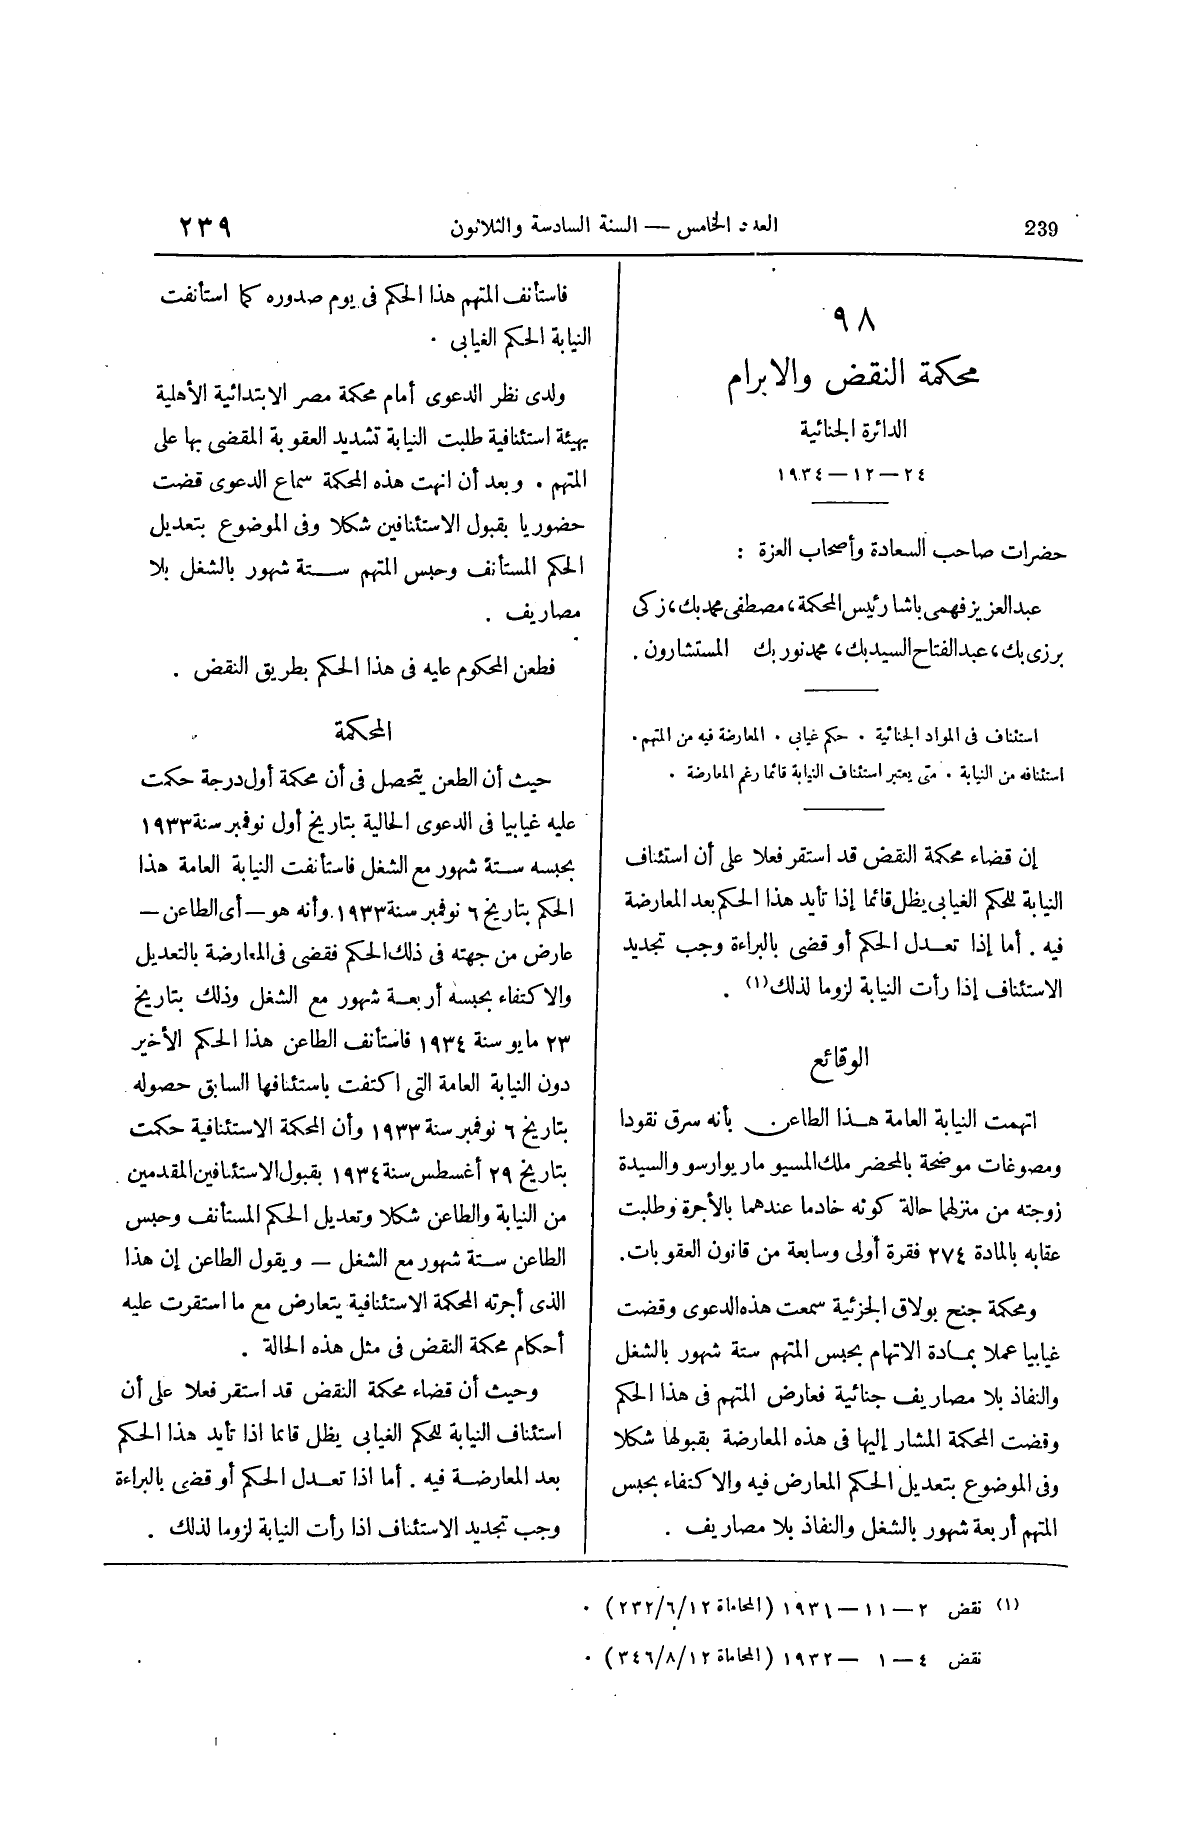 239
العدد الخامس — السنة السادسة والثلاثون
٢٣٩
٩٨
محكمة النقض والابرام
الدائرة الجنائية
٢٤ — ١٢ — ١٩٣٤
حضرات صاحب السعادة وأصحاب العزة :
عبد العزيز فهمى باشا رئيس المحكمة، مصطفى محمد بك، زكى
برزى بك، عبد الفتاح السيد بك، محمد نور بك المستشارون .
استئناف فى المواد الجنائية . حكم غيابى . المعارضة فيه من المتهم .
استئنافه من النيابة . متى يعتبر استئناف النيابة قائما رغم المعارضة .
إن قضاء محكمة النقض قد استقر فعلا على أن استئناف
النيابة للحكم الغيابى يظل قائما إذا تأيد هذا الحكم بعد المعارضة
فيه . أما إذا تعدل الحكم أو قضى بالبراءة وجب تجديد
الاستئناف إذا رأت النيابة لزوما لذلك (١) .
الوقائع
اتهمت النيابة العامة هذا الطاعن بأنه سرق نقودا
ومصوغات موضحة بالمحضر ملك المسيو ماريوارسو والسيدة
زوجته من منزلهما حالة كونه خادما عندهما بالأجرة وطلبت
عقابه بالمادة ٢٧٤ فقرة أولى وسابعة من قانون العقوبات.
ومحكمة جنح بولاق الجزئية سمعت هذه الدعوى وقضت
غيابيا عملا بمادة الاتهام بحبس المتهم ستة شهور بالشغل
والنفاذ بلا مصاريف جنائية فعارض المتهم فى هذا الحكم
وقضت المحكمة المشار إليها فى هذه المعارضة بقبولها شكلا
وفى الموضوع بتعديل الحكم المعارض فيه والاكتفاء بحبس
المتهم أربعة شهور بالشغل والنفاذ بلا مصاريف .
فاستأنف المتهم هذا الحكم فى يوم صدوره كما استأنفت
النيابة الحكم الغيابى .
ولدى نظر الدعوى أمام محكمة مصر الابتدائية الأهلية
بهيئة استئنافية طلبت النيابة تشديد العقوبة المقضى بها على
المتهم . وبعد أن انهت هذه المحكمة سماع الدعوى قضت
حضوريا بقبول الاستئنافين شكلا وفى الموضوع بتعديل
الحكم المستأنف وحبس المتهم ستة شهور بالشغل بلا
مصاريف .
فطعن المحكوم عليه فى هذا الحكم بطريق النقض .
المحكمة
حيث أن الطعن يتحصل فى أن محكمة أول درجة حكمت
عليه غيابيا فى الدعوى الحالية بتاريخ أول نوفمبر سنة ١٩٣٣
بحبسه ستة شهور مع الشغل فاستأنفت النيابة العامة هذا
الحكم بتاريخ ٦ نوفمبر سنة ١٩٣٣. وأنه هو — أى الطاعن —
عارض من جهته فى ذلك الحكم فقضى فى المعارضة بالتعديل
والاكتفاء بحبسه أربعة شهور مع الشغل وذلك بتاريخ
٢٣ مايو سنة ١٩٣٤ فاستأنف الطاعن هذا الحكم الأخير
دون النيابة العامة التى اكتفت باستئنافها السابق حصوله
بتاريخ ٦ نوفمبر سنة ١٩٣٣ وأن المحكمة الاستئنافية حكمت
بتاريخ ٢٩ أغسطس سنة ١٩٣٤ بقبول الاستئنافين المقدمين
من النيابة والطاعن شكلا وتعديل الحكم المستأنف وحبس
الطاعن ستة شهور مع الشغل — ويقول الطاعن إن هذا
الذى أجرته المحكمة الاستئنافية يتعارض مع ما استقرت عليه
أحكام محكمة النقض فى مثل هذه الحالة .
وحيث أن قضاء محكمة النقض قد استقر فعلا على أن
استئناف النيابة للحكم الغيابى يظل قائما اذا تأيد هذا الحكم
بعد المعارضة فيه . أما اذا تعدل الحكم أو قضى بالبراءة
وجب تجديد الاستئناف اذا رأت النيابة لزوما لذلك .
(١) نقض ٢ — ١١ — ١٩٣١ (المحاماة ٢٣٢/٦/١٢) .
نقض ٤ — ١ — ١٩٣٢ (المحاماة ٣٤٦/٨/١٢) .